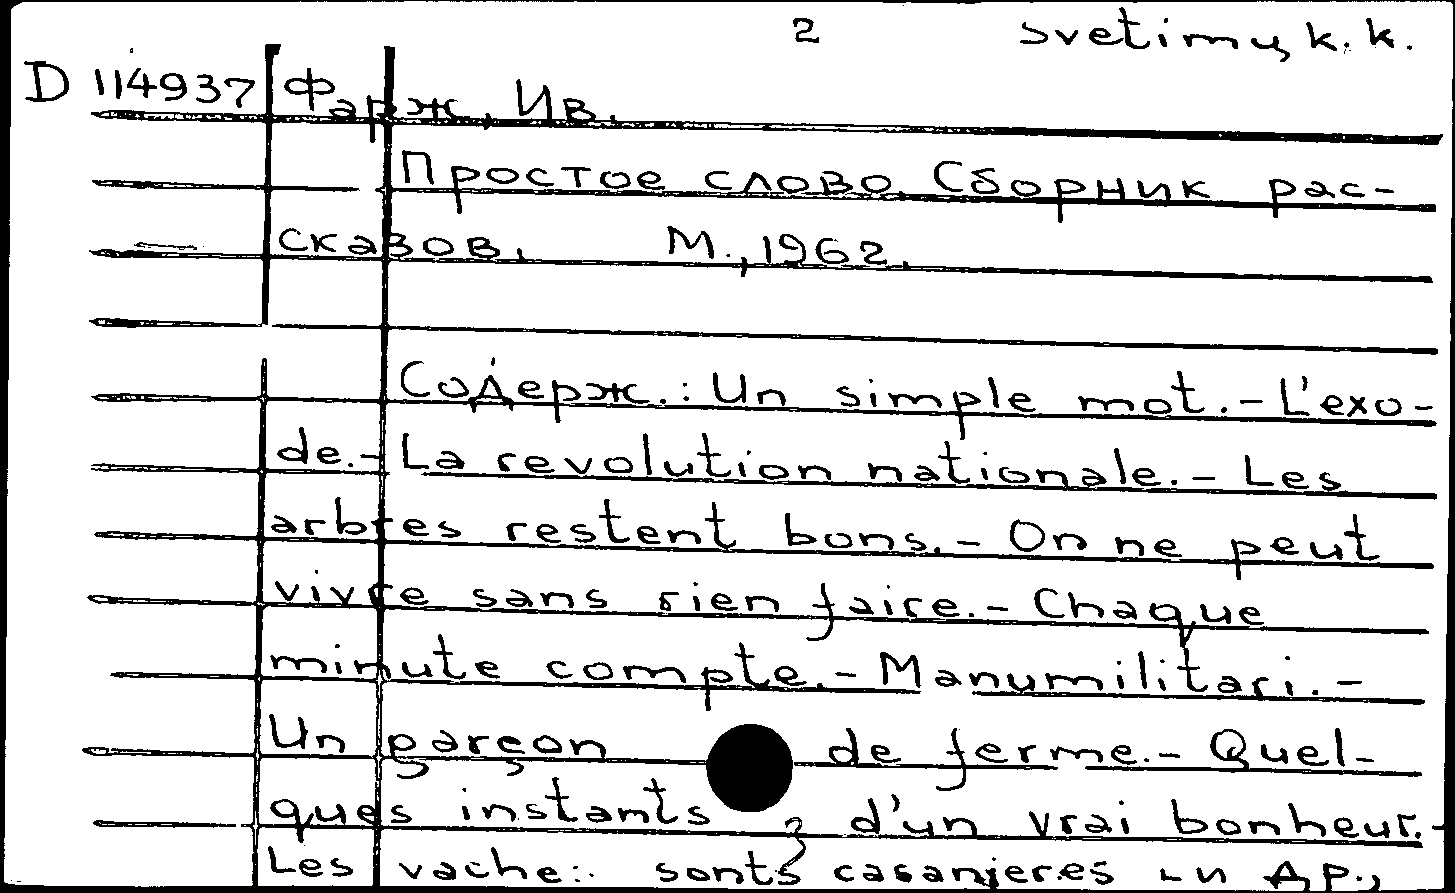 2 svetimų k. k.
D 114937 Фарж, Ив.
Простое слово. Сборник рас-
сказов. М., 1962.
Содерж.: Un simple mot.- L'exo-
de.- La revolution nationale.- Les
arbres restent bons.- On ne peut
vivre sans rien faire.- Chaque
minute compte.- Manumilitari.-
Un garçon de ferme.- Quel-
ques instants d'un vrai bonheur.-
Les vache: sonts casanieres и др.,